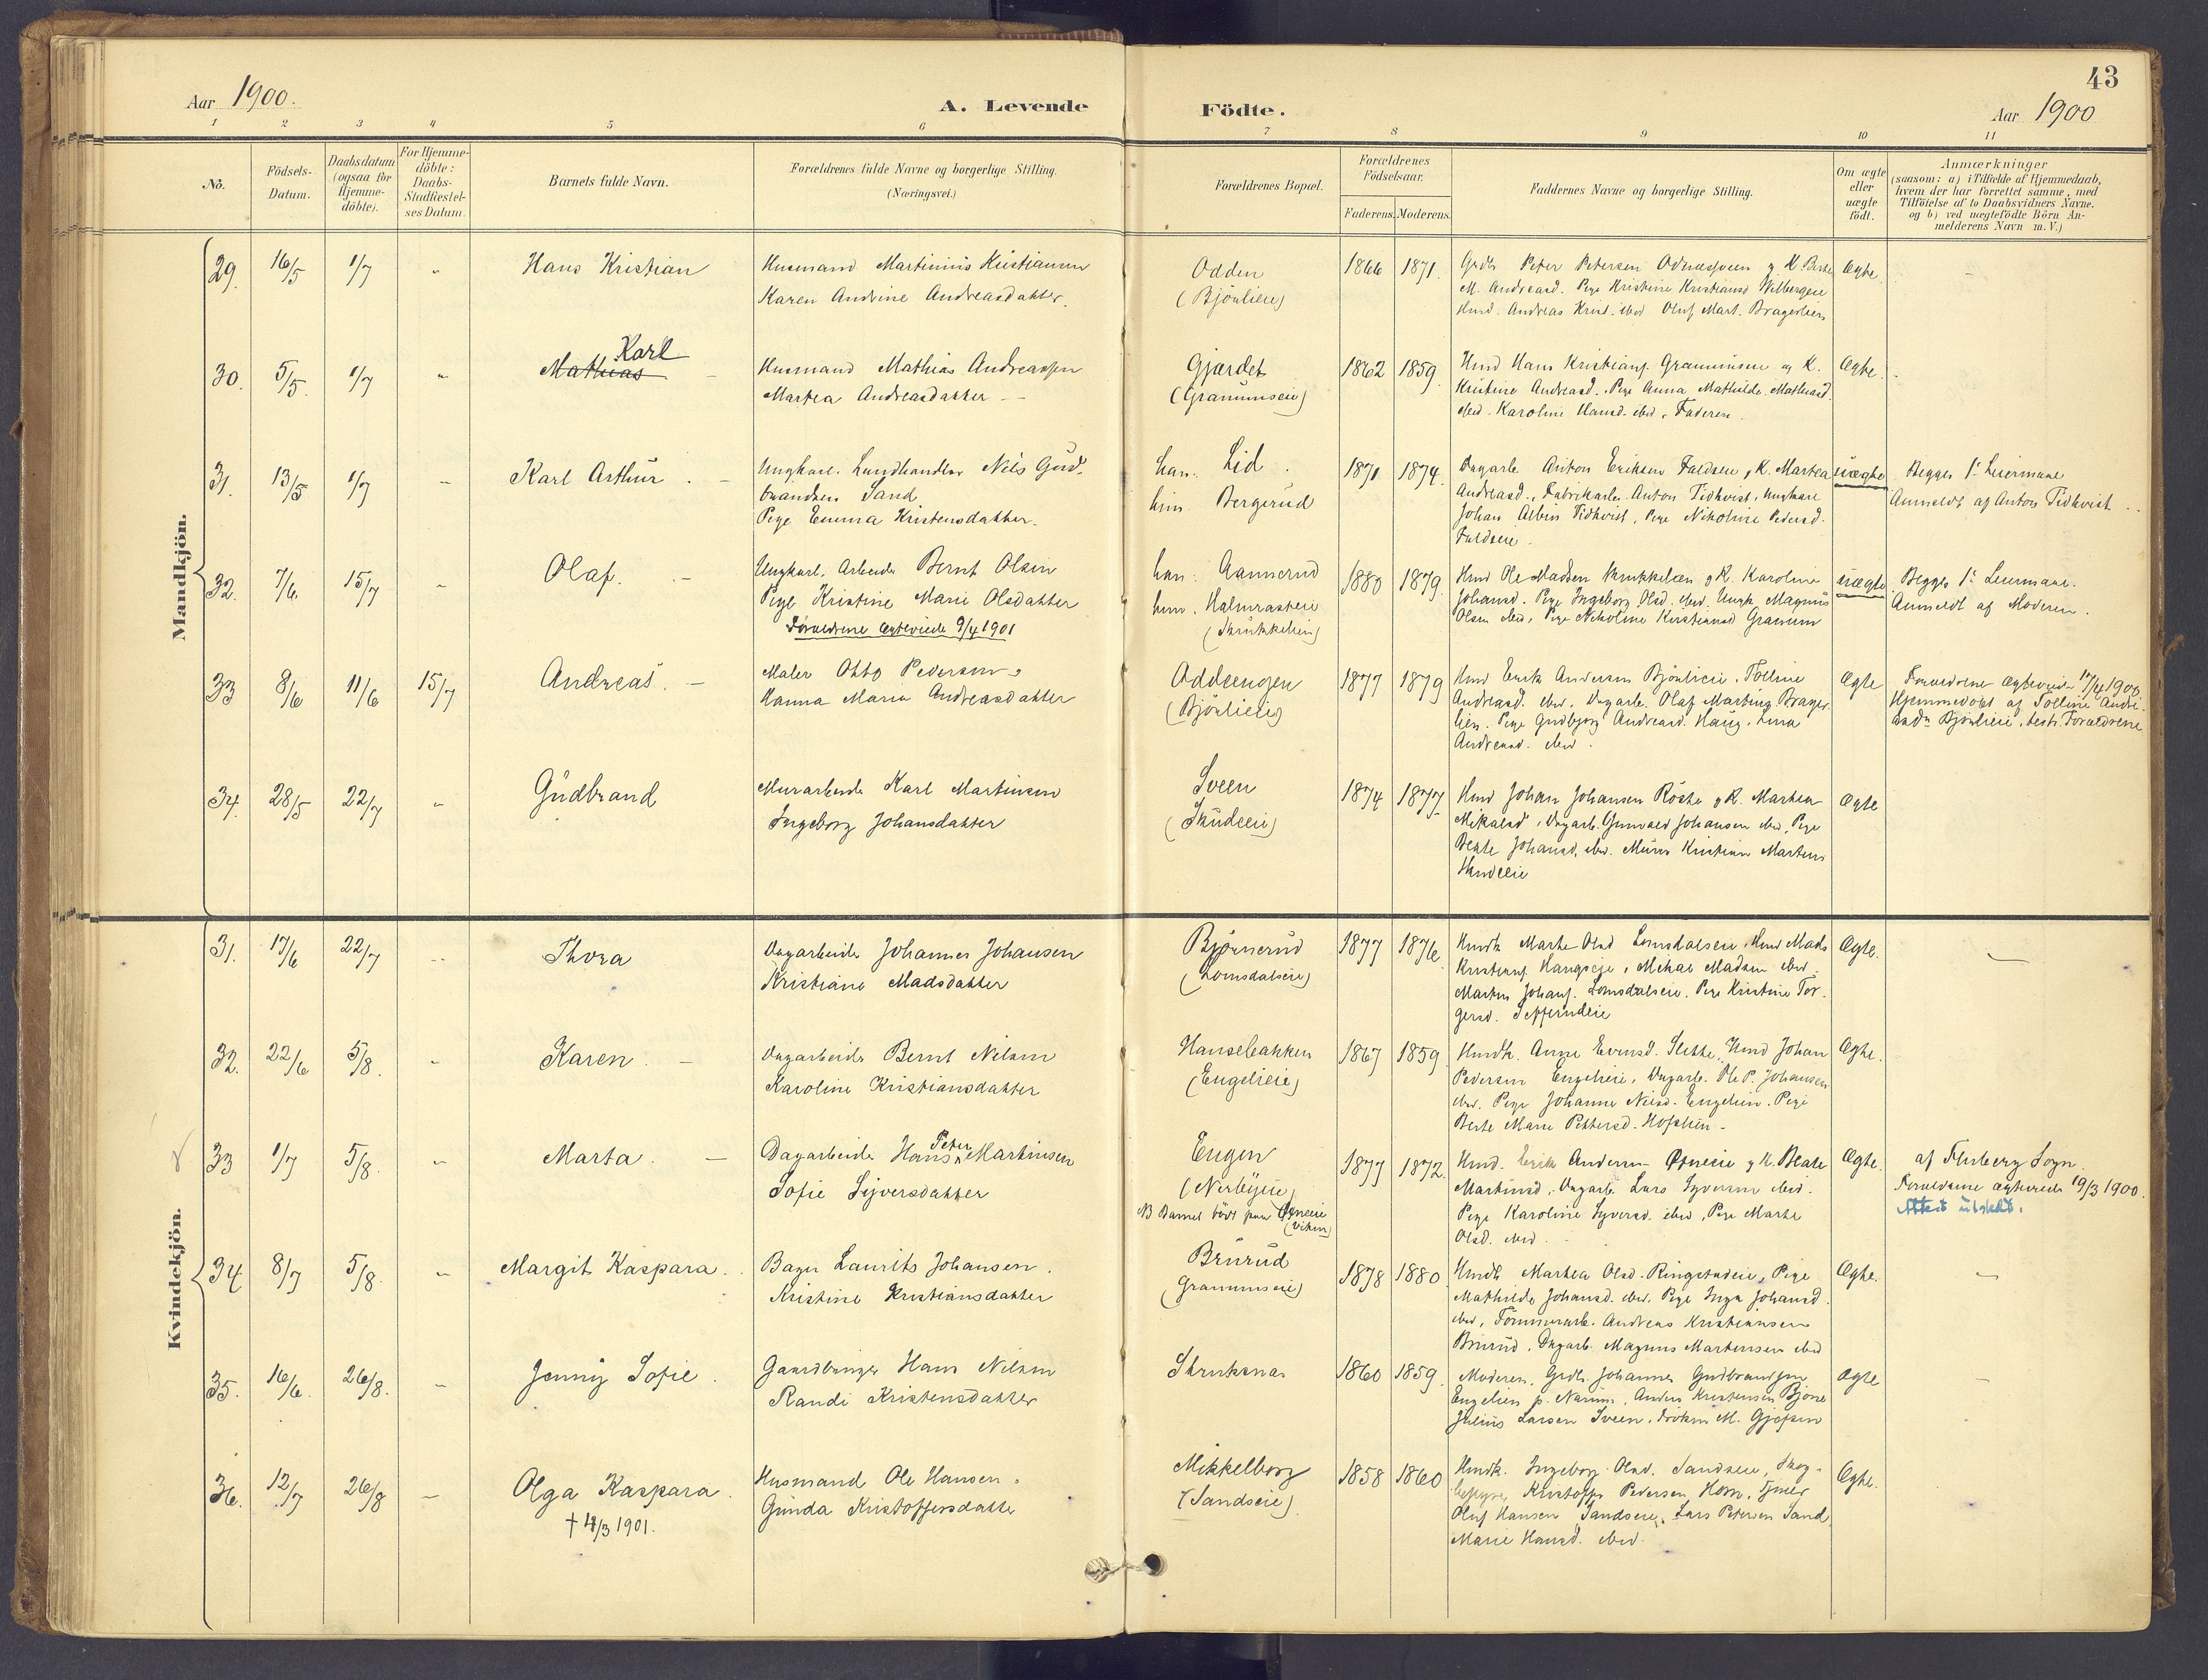 43
Aar 1900.
A. Levende
Födte.
Aar 1900
1 2 3 4 5 6 7 8 9 10 11
No.
Födsels-Datum.
Daabsdatum (ogsaa for Hjemme-döbte).
For Hjemme-döbte: Daabs-Stadfæstel-ses Datum.
Barnets fulde Navn.
Forældrenes fulde Navne og borgerlige Stilling.
(Næringsvei.)
Forældrenes Bopæl.
Forældrenes Födselsaar.
Faderens. Moderens.
Faddernes Navne og borgerlige Stilling.
Om ægte eller uægte födt.
Anmærkninger
(saasom: a) i Tilfælde af Hjemmedaab,
hvem der har forrettet samme, med
Tilföielse af to Daabsvidners Navne.
og b) ved uægtefödte Börn An-
melderens Navn m.V.)
Mandkjön.
29. 16/5 1/7 " Hans Kristian
Husmand Martinius Kristiansen
Karen Andrine Andreasdatter.
Odden
(Bjönlieie)
1866 1871.
Peter Petersen
M. Andreasd. Pige Kristine Kristiansd
Andreas Krist. ibid Oluf Mart. Bragerlien
Ægte.
30. 5/5. 1/7 " Mathias Karl
Husmand Mathias Andreassen
Martea Andreasdatter
Gjærdet
(Granumseie)
1862 1859.
Hmd Hans Kristians. Granumseie og K.
Kristine Andreasd. Pige Anna Mathilde Mathiasd.
ibid. Karoline Hansd. ibid, Faderen.
Ægte.
31. 13/5 1/7 " Karl Arthur.
Ungkarl. Landhandler Nils Gud-
brandsen Sand
Pige Emma Kristensdatter.
han. Lid.
hun. Bergerud
1871 1874.
Dagarb. Anton Eriksen Faldseie og K. Martea
Andreasd., Fabrikarb. Anton Tidkvist, Ungkarl
Johan Albin Tidkvist, Pige Nikoline Pedersd.
Faldseie.
uægte
Begges 1ste Leiermaal
Anmeldt af Anton Tidkvist
32. 7/6 15/7 " Olaf.
Ungkarl. Arbeider Bernt Olsen
Pige Kristine Marie Olsdatter
Forældrene ægteviede 9/4 1901
han. Aannerud
hun.
1880 1879.
Hmd Ole Madsen og K. Karoline
Johansd. Pige Ingeborg Olsd. ibid. Ungk Magnus
Olsen ibid, Pige Nikoline Kristiansd Granum
uægte
Begges 1ste Leiermaal.
Anmeldt af Moderen.
33 8/6 11/6 15/7 Andreas.
Maler Otto Pedersen
Hanna Maria Andreasdatter
Addeengen
(Bjönlieie)
1877 1879
Hmd Erik Andersen Bjönlieie, Tolline
Andreasd. ibid. Dagarb. Olaf Martins. Brager-
lien. Pige Gudbjörg Andreasd. Haug, Lina
Andreasd. ibid.
Ægte
Forældrene ægteviede 17/4 1900.
Hjemmedöbt af Tolline Andre-
asdr Bjönlieie, test. Forældrene
34. 28/5 22/7 " Gudbrand
Murarbeider Karl Martinsen
Ingeborg Johansdatter
Sveen
1874 1877
Hmd Johan Johansen Röste og K. Marthea
Mikalsd, Dagarb. Gunvald Johansen ibid, Pige
Beate Johansd, ibid. Murer Kristian Martins
Ægte
Kvindekjön.
31. 17/6 22/7 " Thora
Dagarbeider Johannes Johansen
Kristiane Madsdatter
Björnerud
(Lomsdalseie)
1877 1876
Hmdk Marte Olsd Lomsdalseie, Hmd Mads
Kristians. Haugseie, Mikal Madsen ibid.
Martin Johans. Lomsdalseie. Pige Kristine Tor-
gersd.
Ægte.
32. 22/6 5/8. " Karen.
Dagarbeider Bernt Nilsen
Karoline Kristiansdatter
Hansebakken
(Engelieie)
1867 1859.
Hmdk. Anne Evensd. Slette, Hmd Johan
Pedersen Engelieie, Dagarb. Ole P. Johansen
ibid. Pige Johanne Nilsd. Engelien. Pige
Berte Marie Pettersd.
Ægte.
33 1/7 5/8. " Marta.
Dagarbeider Hans Peter Martinsen
Sofie Sijversdatter
Engen
NB Barnet födt paa
1877 1872.
Hmd. Erik Andersen og K. Beate
Martinsd, Dagarb Lars Syversen ibid.
Pige Karoline Syversd. ibid, Pige Marte
Olsd. ibid.
Ægte.
af Fluberg Sogn.
Forældrene ægteviede 19/3 1900.
Attest utstedt.
34 8/7 5/8. " Margit Kaspara.
Bager Laurits Johansen.
Kristine Kristiansdatter
Brurud
(Granumseie)
1878 1880
Hmdk Marthea Olsd. Ringstadeie, Pige
Mathilde Johansd. ibid. Pige Inga Johansd.
ibid, Tömmerarb. Andreas Kristiansen
Brurud, Dagarb. Magnus Martinsen ibid
Ægte.
35. 16/6. 26/8. " Jenny Sofie.
Gaardbruger Hans Nilsen
Randi Kristensdatter
1860 1859.
Moderen, Grdb. Johannes Gudbrandsen
Engelien Anders Kristensen Bjöne
Julius Larsen Sveen, Fröken M.
Ægte
36. 12/7 26/8 Olga Kaspara.
† 4/3 1901.
Husmand Ole Hansen.
Gunda Kristoffersdatter
Mikkelborg
(Sandseie)
1858 1860
Hmdk. Ingeborg Olsd. Sandseie, Skog-
Kristoffer Pedersen Horn,
Oluf Hansen Sandseie, Lars Petersen Sand,
Marie Hansd. ibid.
Ægte.